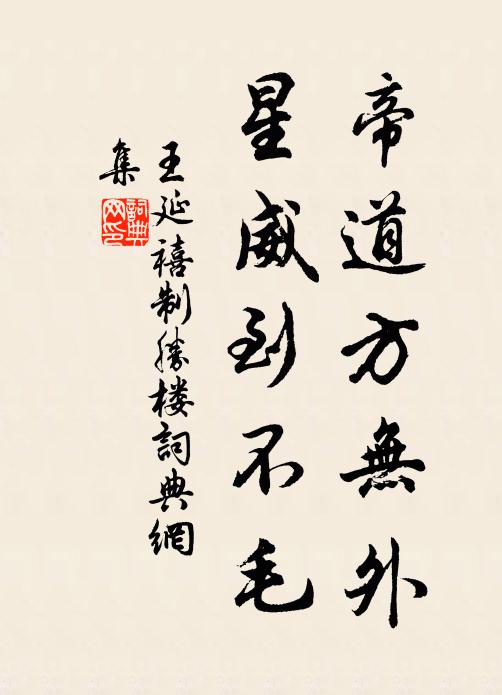 帝道方無外
星威到不毛
王延禧制勝楼詞典網
集
詞典
网印